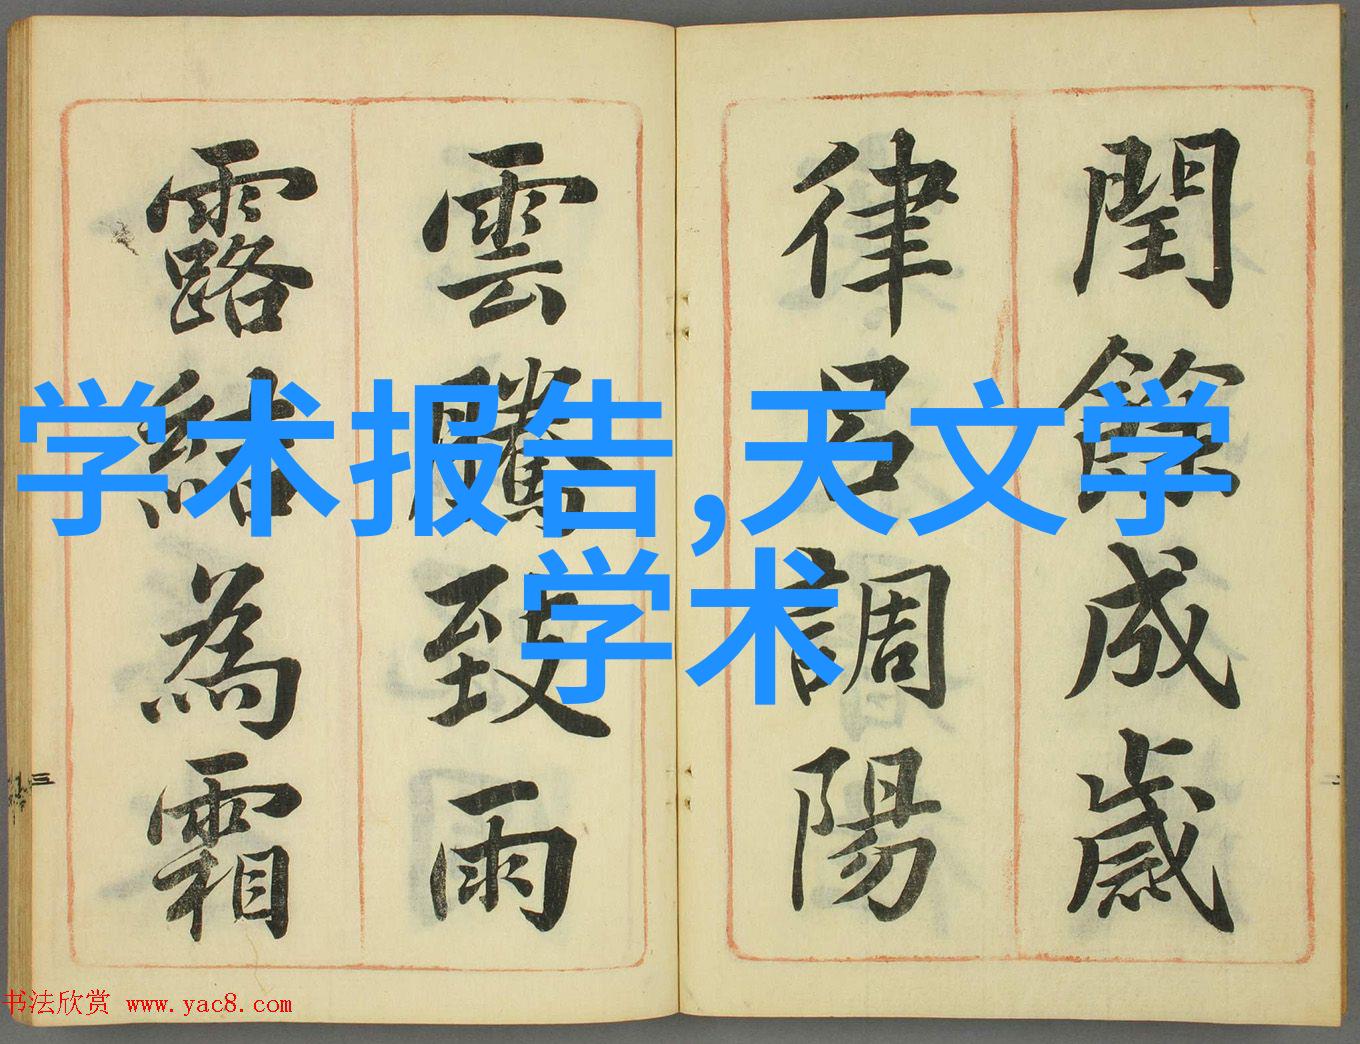 閏餘成歲
律呂調陽
雲騰致雨
露結為霜
学术报告,天文学
学术
三
二
书法欣赏 www.yac8.com